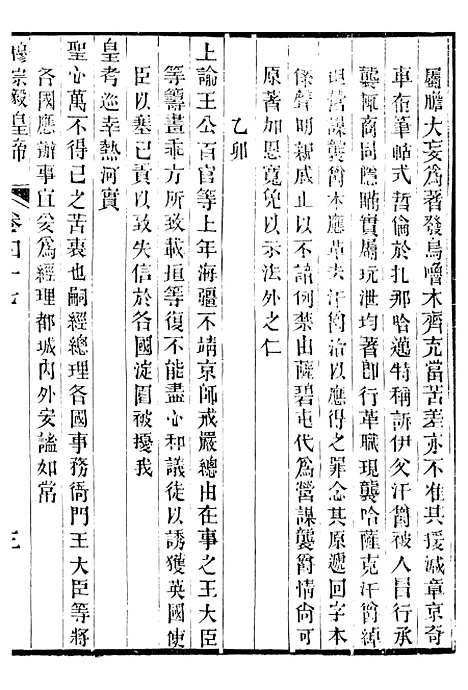 屬膽大妄爲著發烏嚕木齊充當苦差亦不准其援減章京奇
車布筆帖式哲倫於扎那哈邁特稱訴伊父汗爵被人冒行承
襲輒商同隱瞞實屬玩泄均著卽行革職現襲哈薩克汗爵綽
坦營謀襲爵本應革去汗爵治以應得之罪念其原遞回字本
係聲明親戚止以不諳例禁由薩碧屯代爲營謀襲爵情尙可
原著加恩寬免以示法外之仁
乙卯
上諭王公百官等上年海疆不靖京師戒嚴總由在事之王大臣
等籌畫乖方所致載垣等復不能盡心和議徒以誘獲英國使
臣以塞己責以致失信於各國淀園被擾我
皇考巡幸熱河實
聖心萬不得已之苦衷也嗣經總理各國事務衙門王大臣等將
各國應辦事宜妥爲經理都城內外安謐如常
穆宗毅皇帝 卷四十七 三